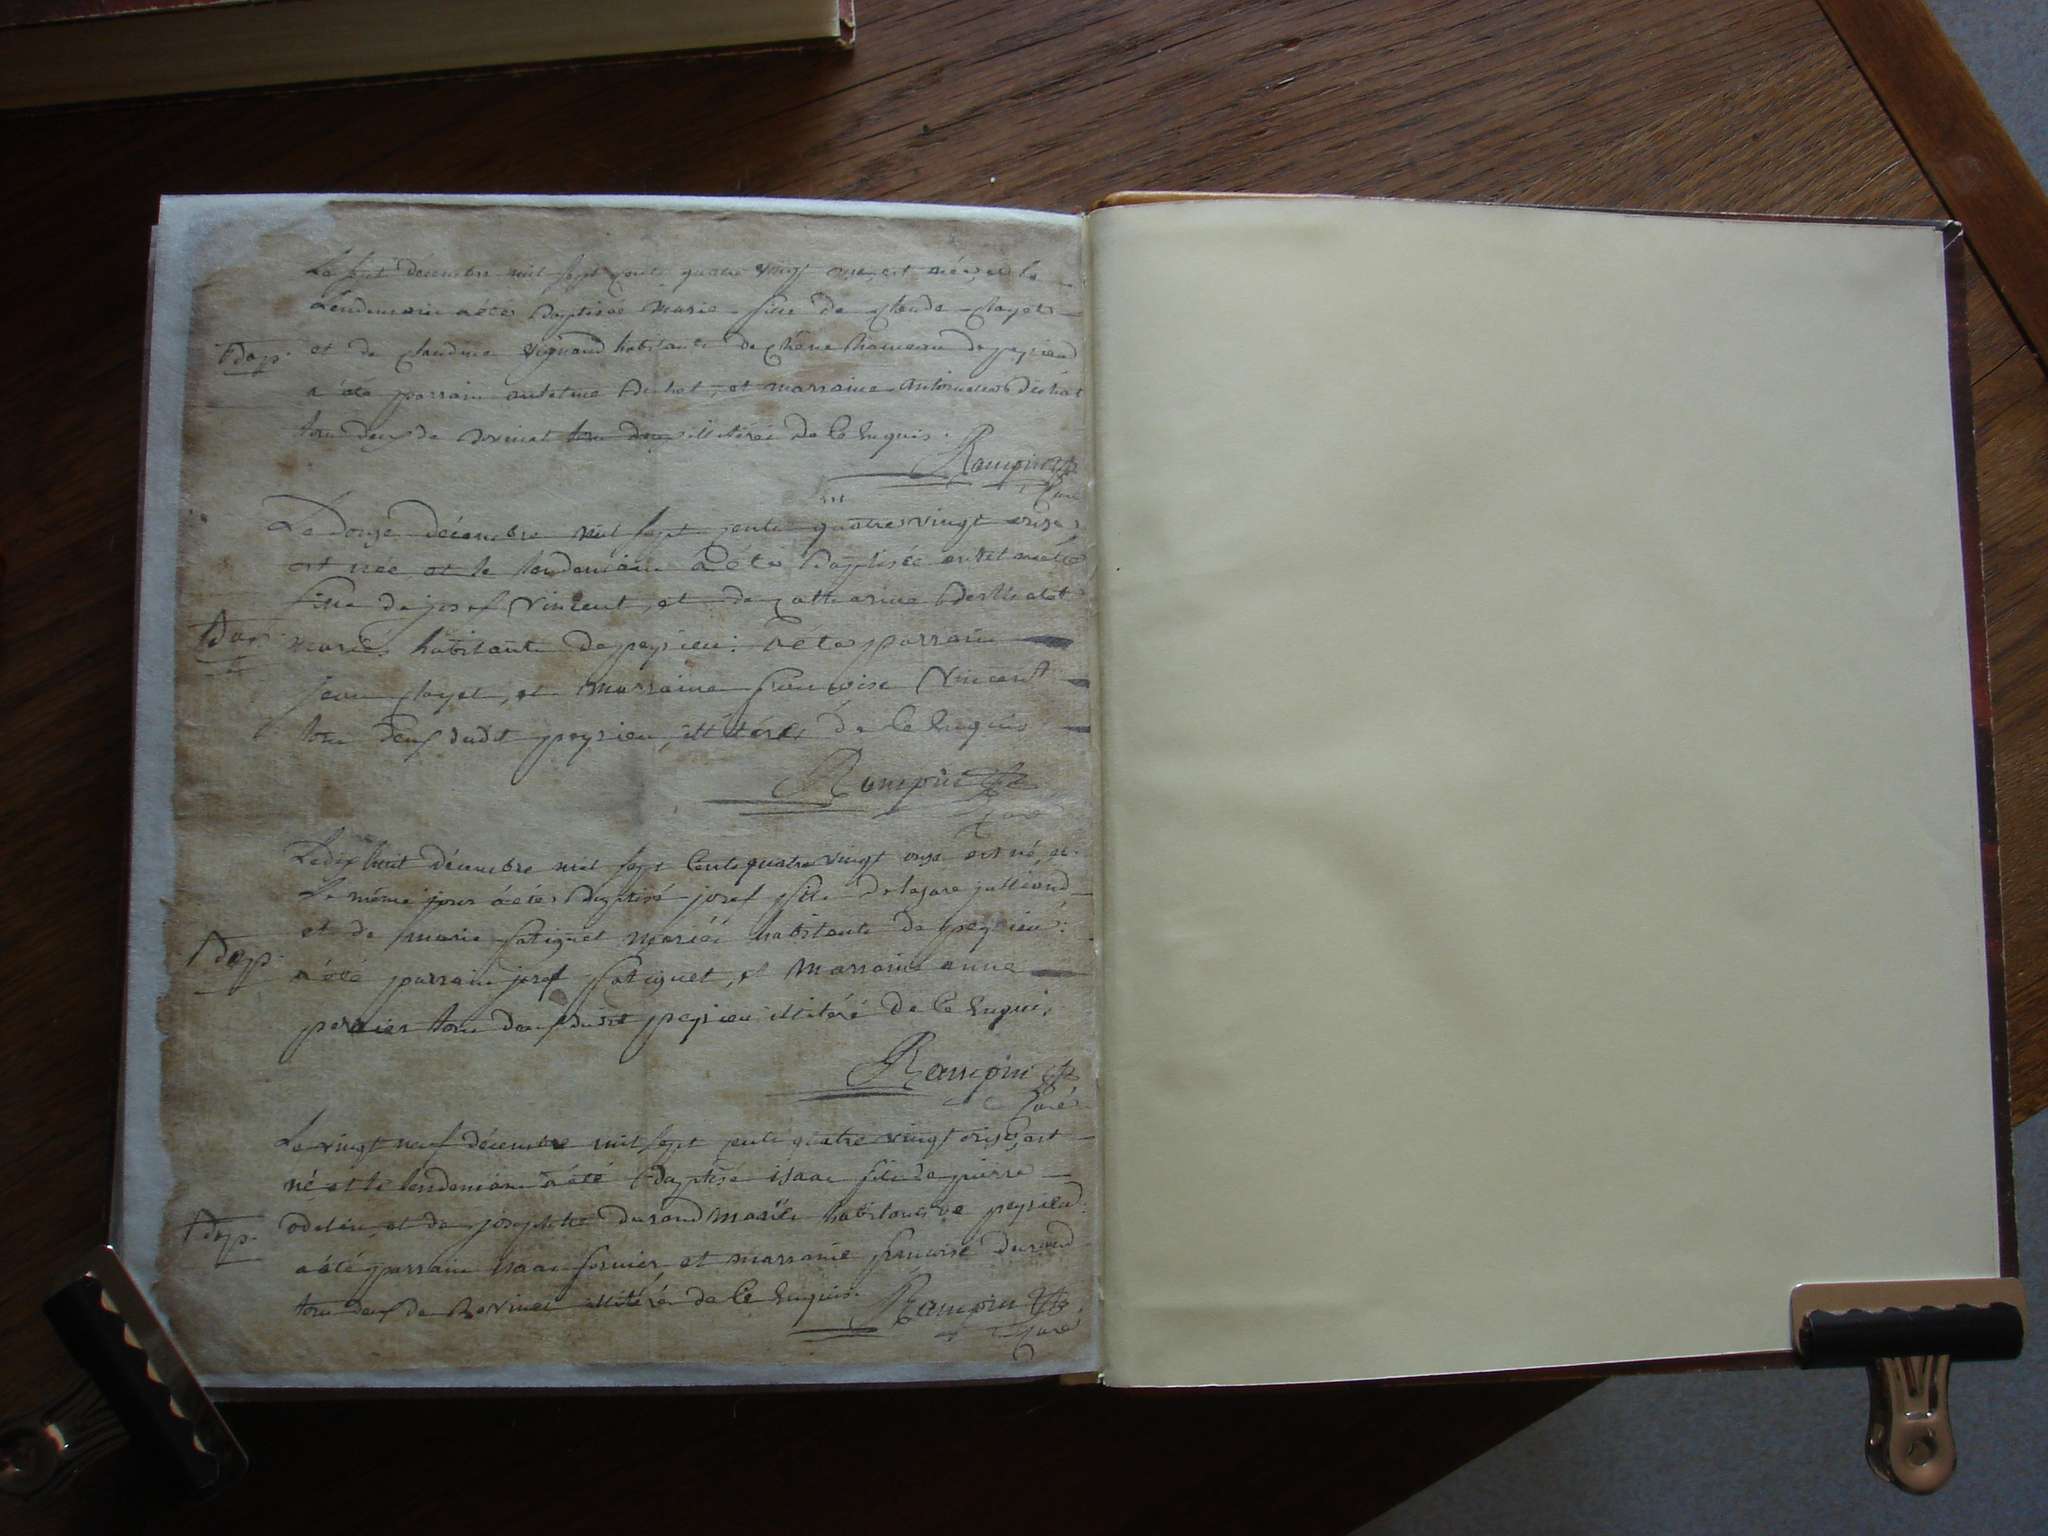 Le sept décembre mil sept cents quatre vingt onze, est née, et le
Lendemain a été Baptisée marie fille de Claude Clayet
Bap. et de Claudine vignand habitants de Chêne hameau de peysieu
a été parrain antelme Duchat, et marraine antoinette
tous deux de tous deux illitérés De Ce Enquis.
Rampin
Curé
Le Douze décembre mil sept cents quatre vingt onze
est née et le lendemain a été Baptisée antelmette
fille de josef Vincent, et de Catherine
Bap. mariés habitants de peysieu: a été parrain
jean Clayet, et marraine françoise Vincent
tous deux dudit peysieu, illitérés de Ce Enquis
Rampin
Curé
Le dix huit décembre mil sept Cents quatre vingt onze est né, et
Le même jour a été Baptisé josef fils de lazare
et de marie fatiguet mariés habitants de peysieu:
Bap. a été parrain josef fatiguet, et marraine anne
perrier tous deux dudit peysieu illitéré De Ce Enquis.
Rampin
Curé
Le vingt neuf décembre mil sept cents quatre vingt onze, est
né et le lendemain a été Baptisé isaac fils de pierre
Bap. et de josephte durand mariés habitants de peysieu.
a été parrain isaac fornier, et marraine françoise durand
tous deux de illitérés de Ce Enquis.
Rampin
Curé